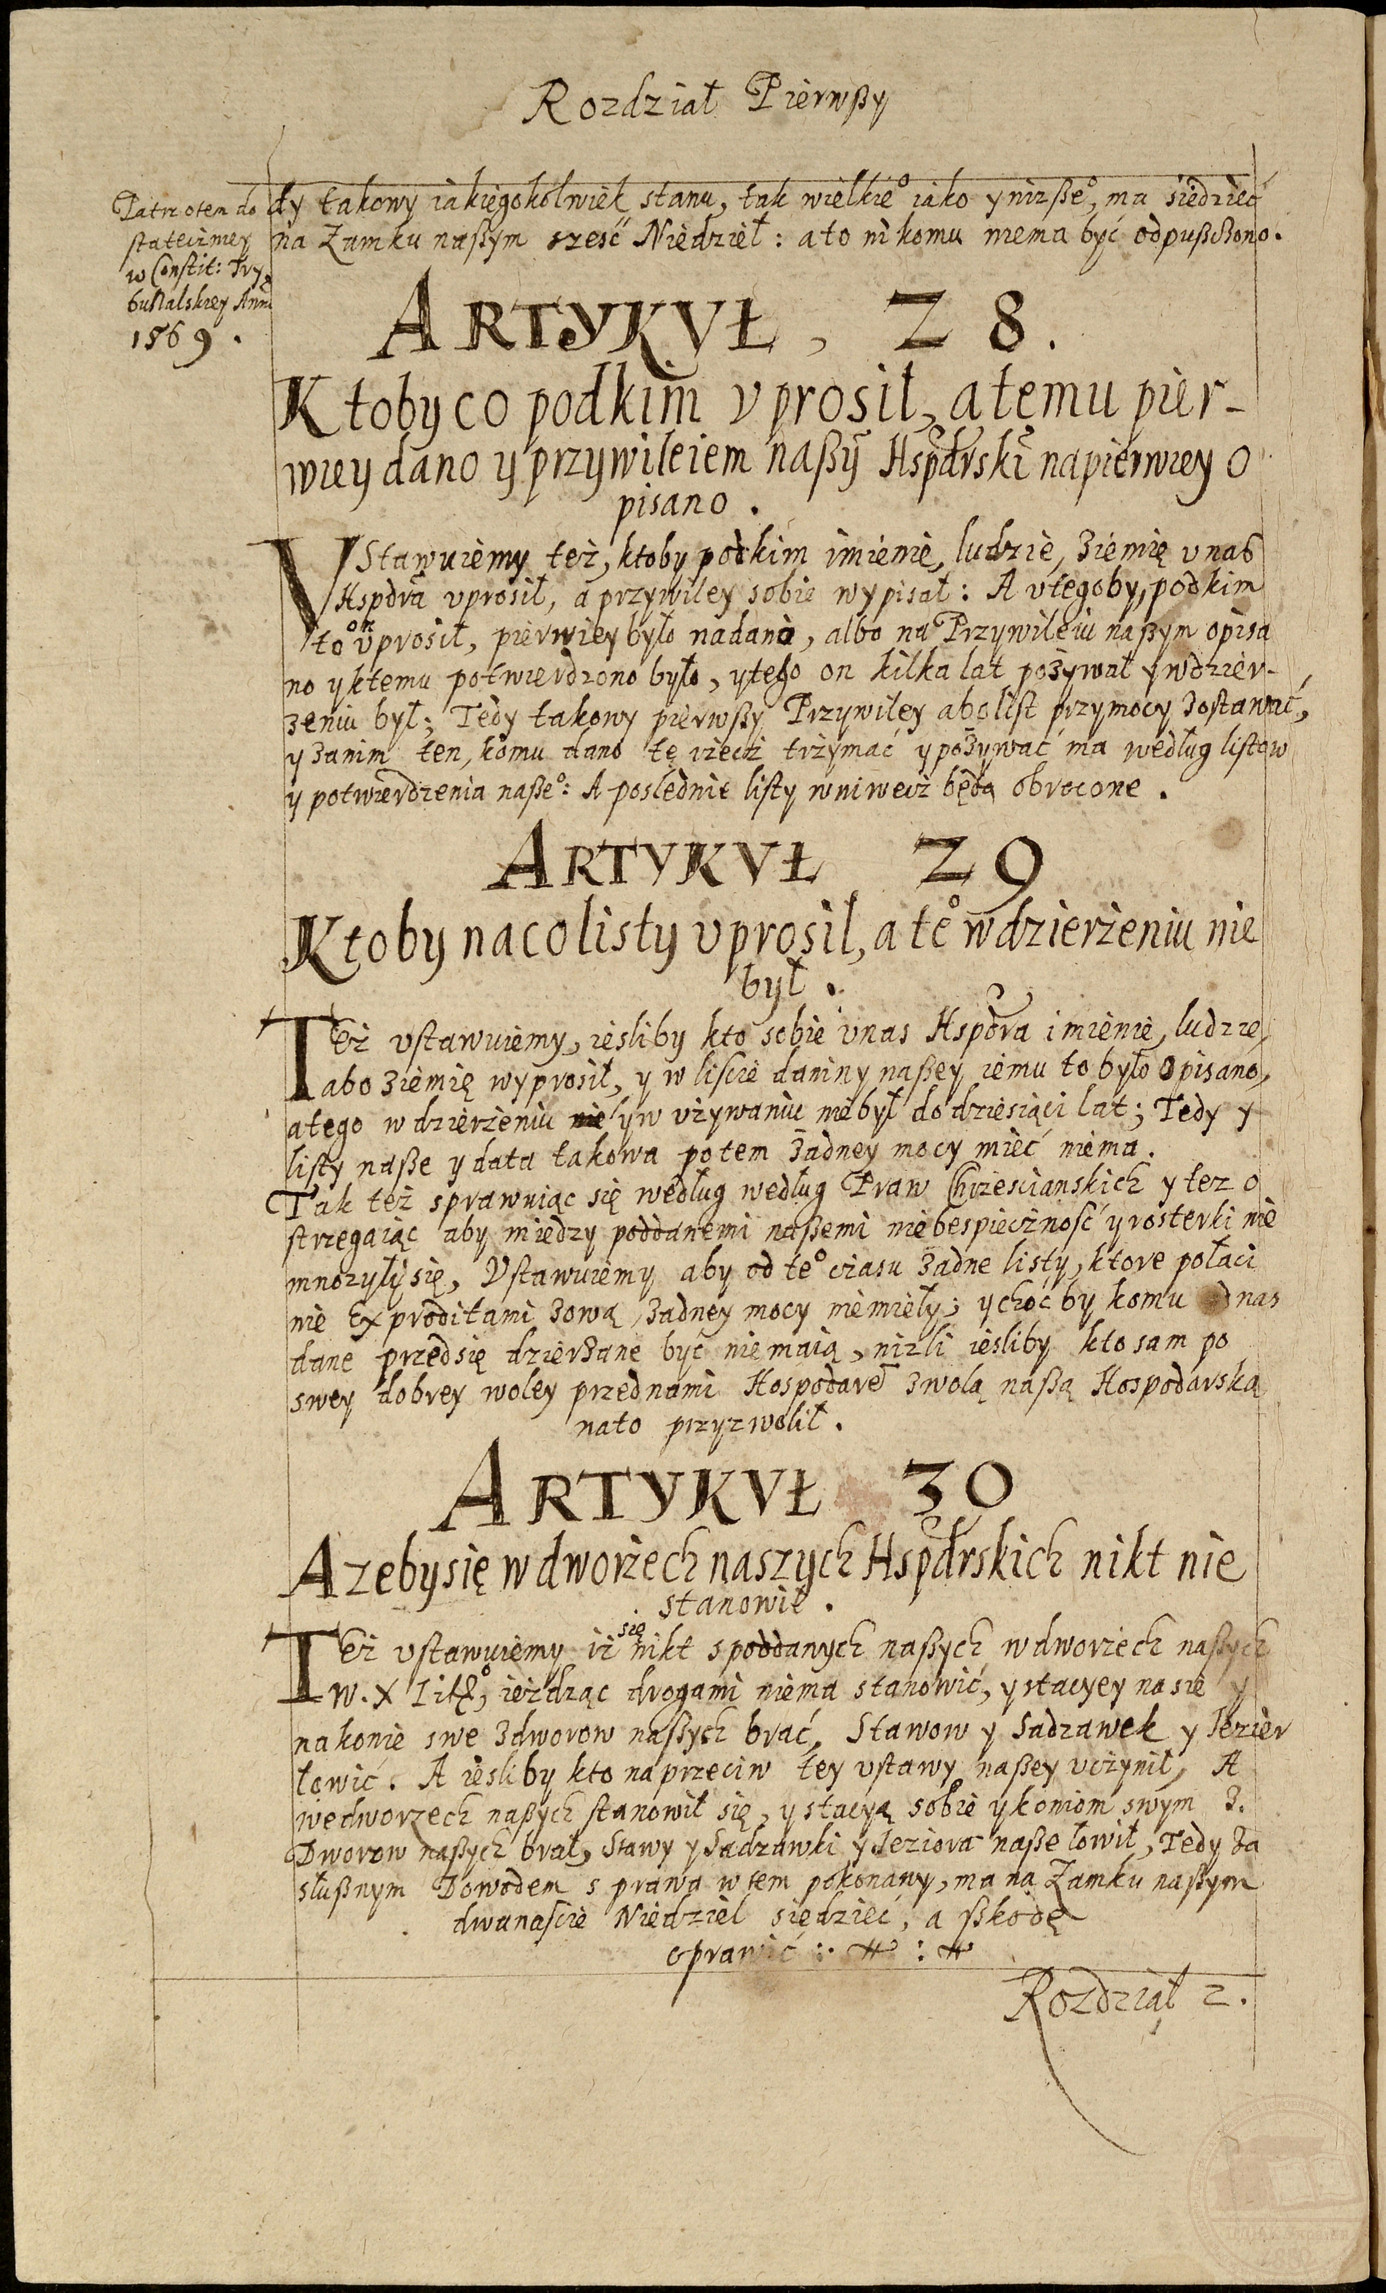 Rozdział Pierwßy
Patrz otem do
statecżniey
w Constit: Try
bunalskiey Anni
1569.
dy takowy iakiegokolwiek stanu, tak wielkie° iako y niżße°, ma siedzieć
na Zamku naßym sześć Niedziel: a to nikomu niema być odpußczono.
ARTYKVŁ, 28.
Ktoby co podkim vprosił, a temu pier-
wiey dano y przywileiem naßỹ Hspdrskĩ napierwiey o
pisano.
VStawuiemy też, ktoby podkim imienie, ludzie, ziemię v nas
Hspdra vprosił, a przywiley sobie wypisał: A v tegoby, podkim
to on vprosił, pierwiey było nadano, albo na Przywileiu naßym opisa
no y ktemu potwierdzono było, y tego on kilka lat pożywał y wdzier-
żeniu był; Tedy takowy pierwßy Przywiley abo list przymocy zostawać,
y zanim ten, komu dano tę rzecż trżymać y pożywać ma według listow
y potwierdzenia naße°: A poslednie listy wniwecż będą obrocone.
ARTYKVŁ 29
Ktoby nacolisty vprosil, a te° w dzierżeniu nie
był.
Też vstawuiemy, iesliby kto sobie vnas Hspdra imienie, ludzie,
abo ziemię wyprosił, y w liscie daniny naßey iemu to było opisano,
a tego w dzierżeniu nie y w vżywaniu niebył do dziesiąci lat; Tedy y
listy naße y data takowa potem żadney mocy mieć niema.
Tak też sprawuiąc się według według Praw Chrześcianskich y też o
strzegaiąc aby miedzy poddanemi naßemi niebespiecżność y rosterki nie
mnożyły się, Vstawuiemy aby od te° cżasu żadne listy, ktore połaci
nie Exproditami zową, żadney mocy niemieły; y choć by komu od nas
dane przedsię dzierżane być niemaią, niżli iesliby kto sam po
swey dobrey woley przednami Hospodarẽ zwolą naßą Hospodarską
nato przyzwolił.
ARTYKVŁ 30
Azeby się w dworżech naszych Hspdrskich nikt nie
stanowił.
Też vstawuiemy iż się nikt s poddanych naßych w dworżech naßych
w. X Lit°, ieżdząc drogami niema stanowić, y stacyey na sie y
na konie swe z dworow naßych brać, Stawow y Sadzawek y Jezier
łowić. A iesliby kto naprzeciw tey vstawy naßey vcżynił, A
wedworzech naßych stanowił się, y stacyą sobie y koniom swym z.
Dworow naßych brał, Stawy y Sadzawki y Jeziora naße łowił, Tedy za
słußnym Dowodem s prawa w tem pokonany, ma na Zamku naßym
dwanaście Niedziel siedzieć, a ßkodę
oprawić :. # : #
Rozdział 2.